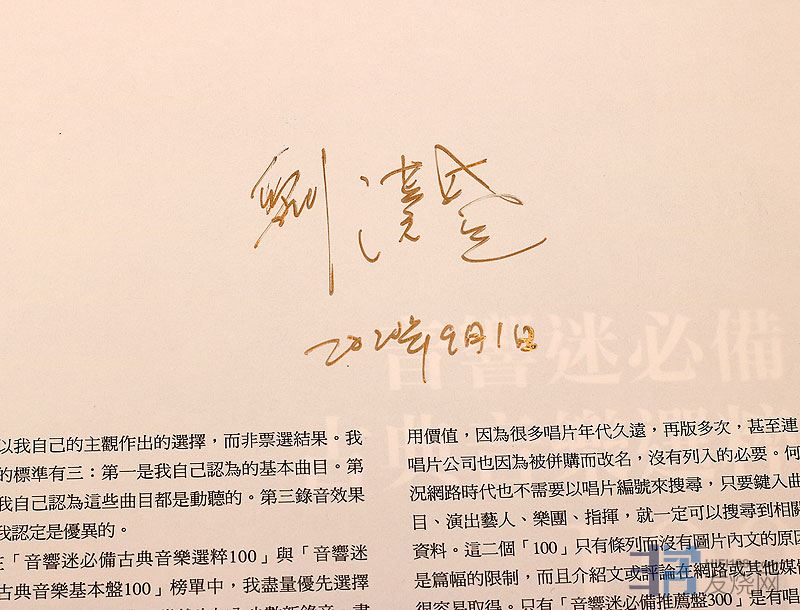 劉漢盛
2020年9月1日
音響迷必備
以我自己的主觀作出的選擇，而非票選結果。我
的標準有三：第一是我自己認為的基本曲目。第
我自己認為這些曲目都是動聽的。第三錄音效果
我認定是優異的。
在「音響迷必備古典音樂選粹100」與「音響迷
古典音樂基本盤100」榜單中，我盡量優先選擇
用價值，因為很多唱片年代久遠，再版多次，甚至連
唱片公司也因為被併購而改名，沒有列入的必要。何
況網路時代也不需要以唱片編號來搜尋，只要鍵入曲
目、演出藝人、樂團、指揮，就一定可以搜尋到相關
資料。這二個「100」只有條列而沒有圖片內文的原因
是篇幅的限制，而且介紹文或評論在網路或其他媒
很容易取得。只有「音響迷必備推薦盤300」是有唱
发烧网